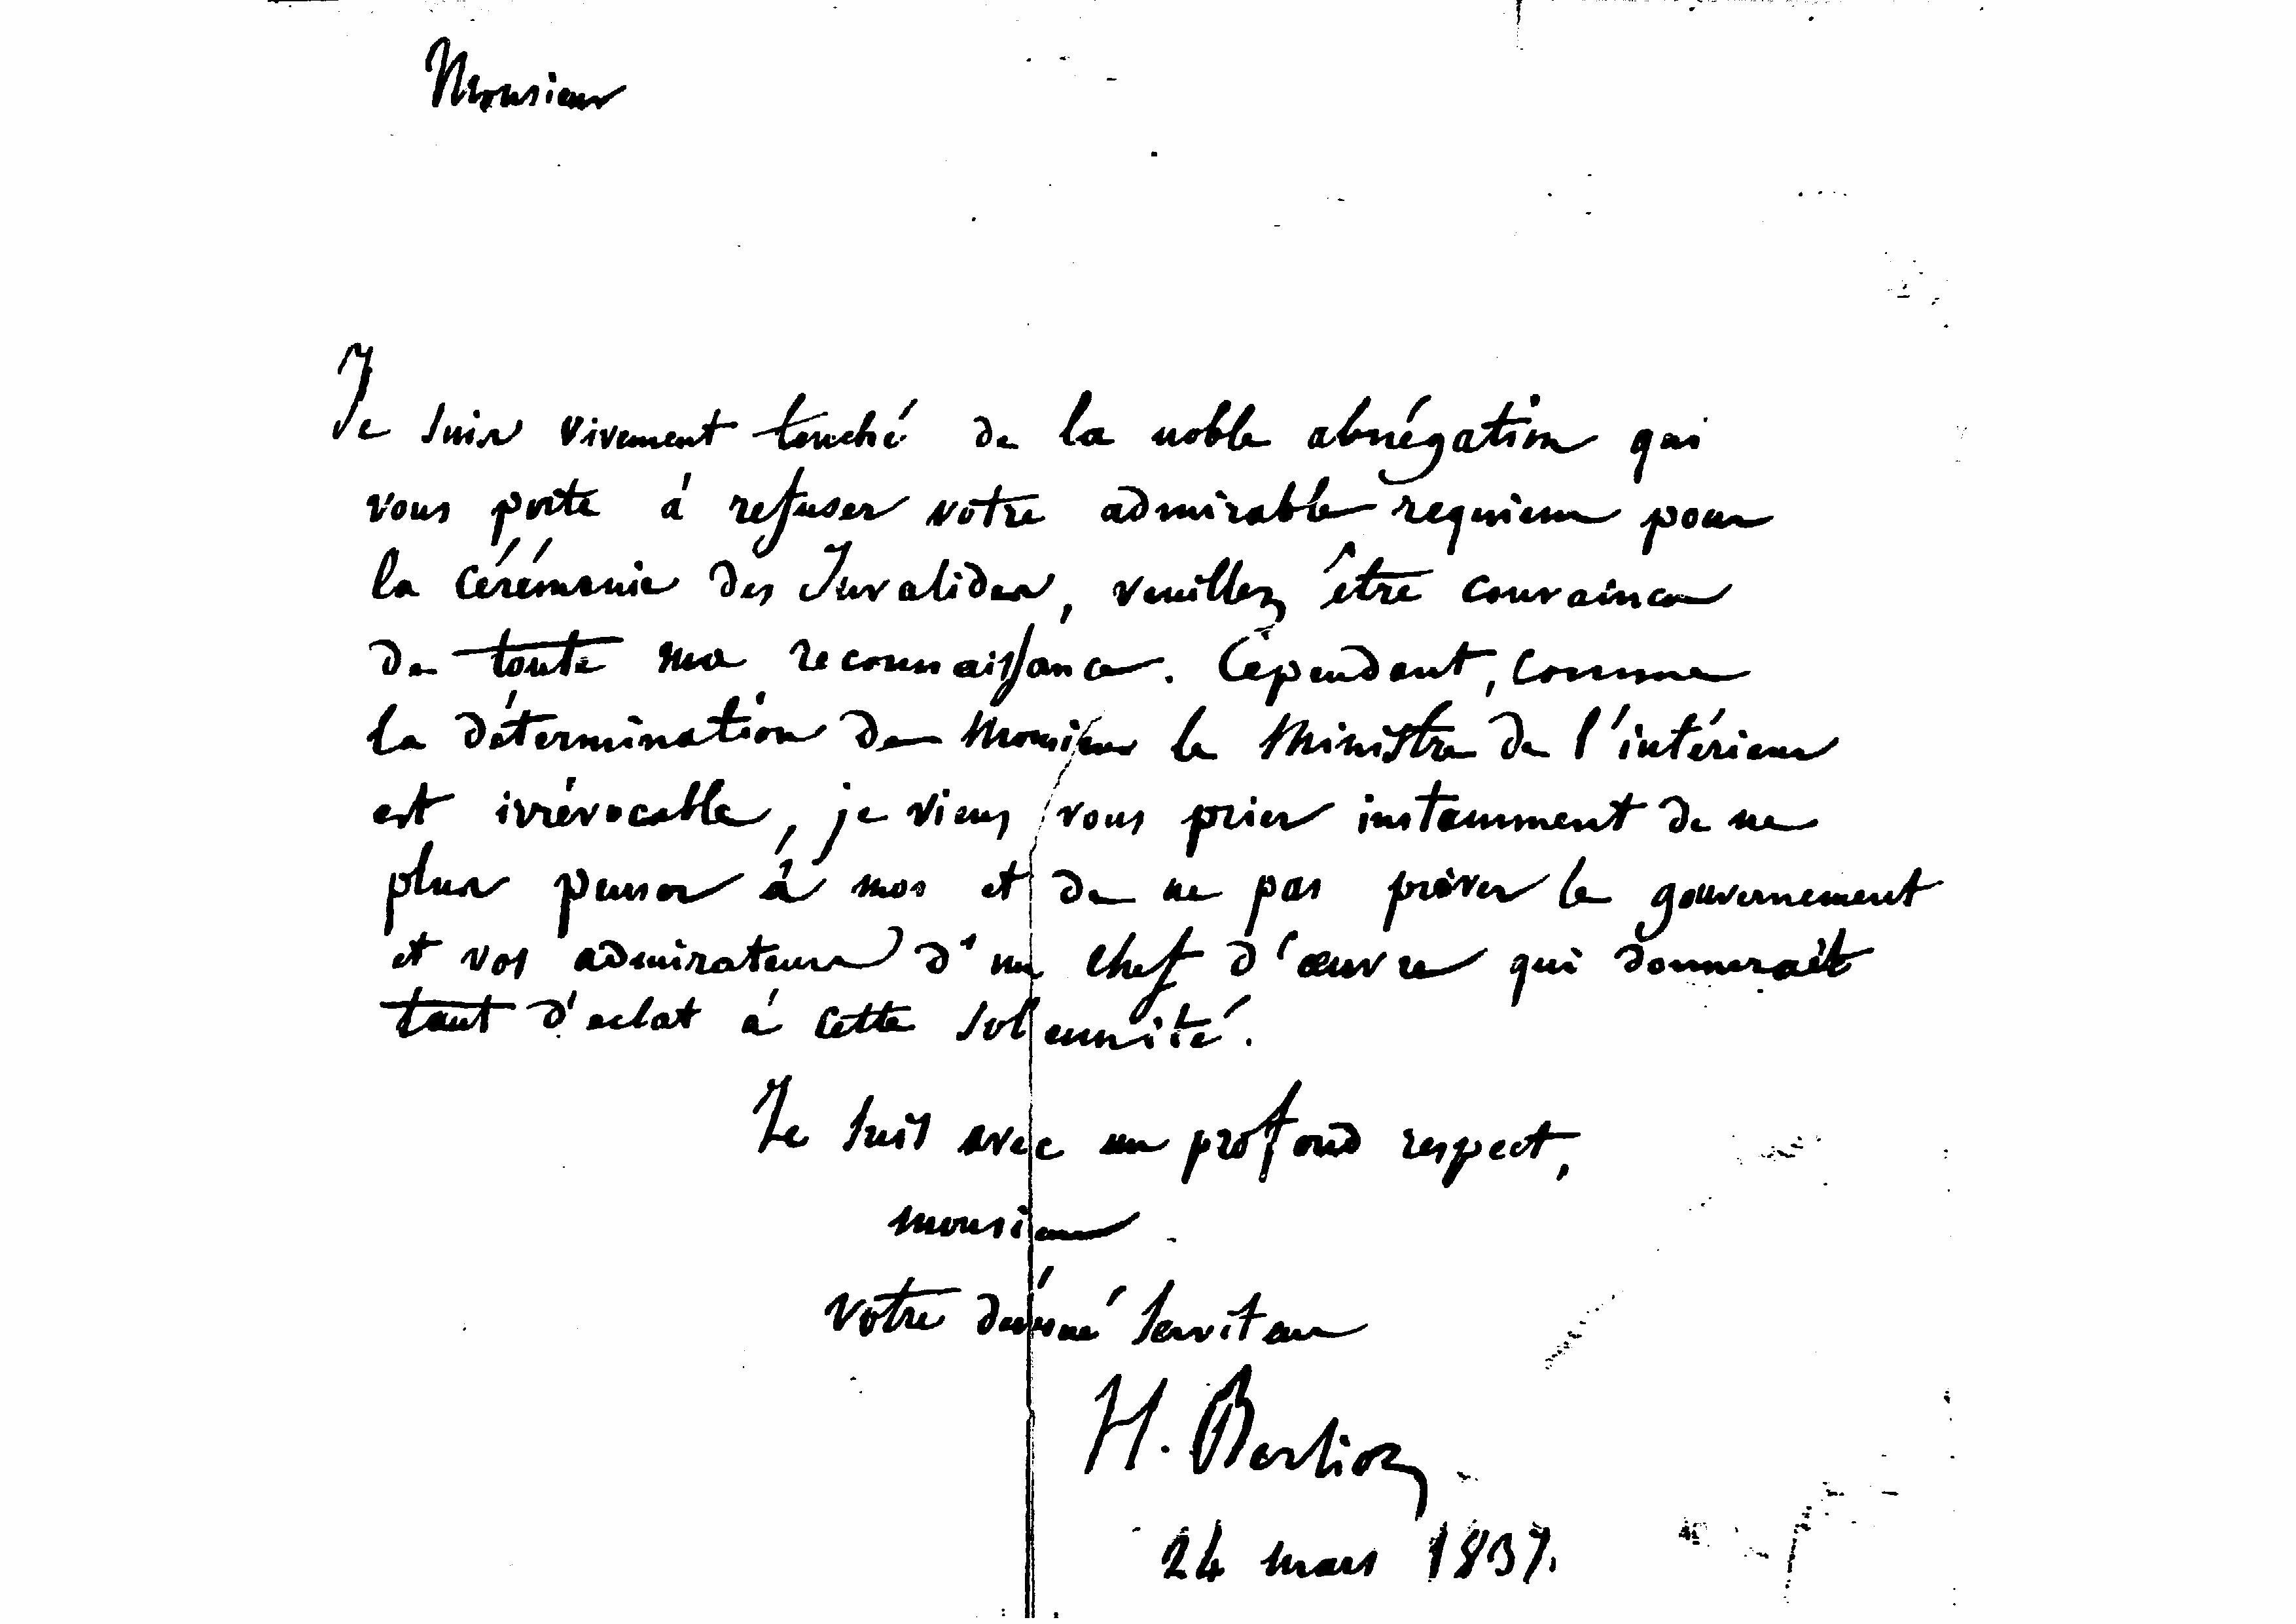 Monsieur
Je suis vivement touché de la noble abnégation qui
vous porte à refuser votre admirable requiem pour
la cérémonie des Invalides, veuillez être convaincu
de toute ma reconnaissance. Cependant, comme
la détermination de Monsieur le Ministre de l'intérieur
est irrévocable, je viens vous prier instamment de ne
plus penser à moi et de ne pas priver le gouvernement
et vos admirateurs d'un chef d'œuvre qui donnerait
tant d'eclat à cette solennité.
Je suis avec un profond respect,
monsieur
votre dévoué serviteur
H. Berlioz
24 mars 1837.